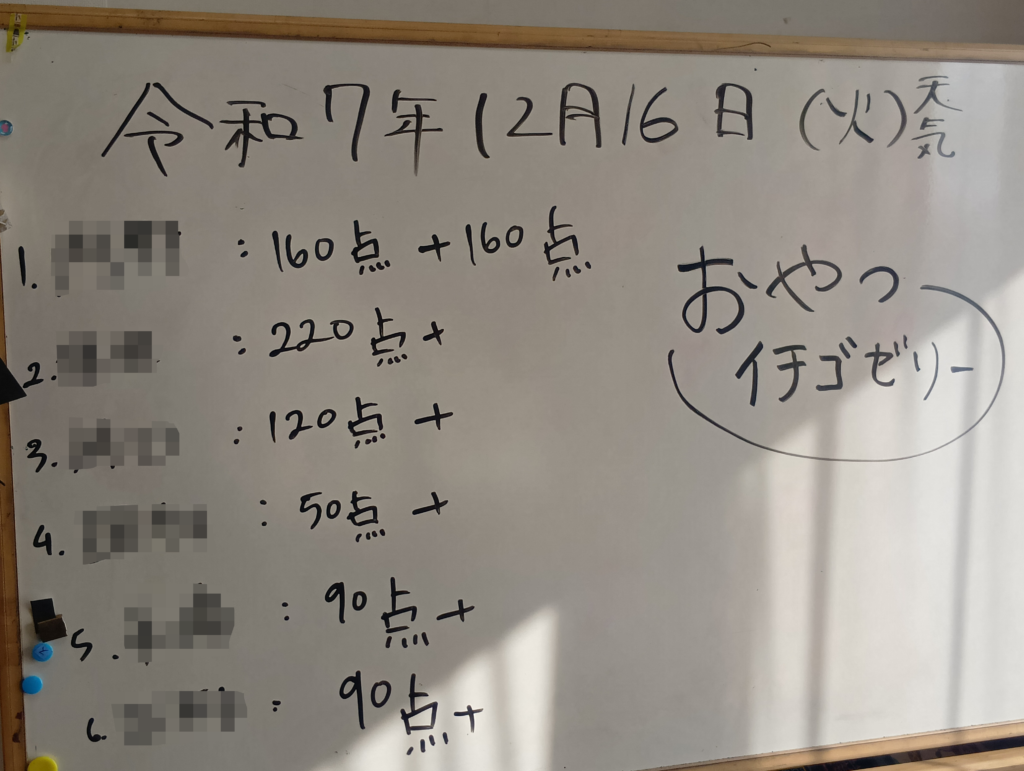 令和7年12月16日(火)天気
1. : 160点+160点
2. : 220点+
3. : 120点+
4. : 50点+
5. : 90点+
6. : 90点+
おやつ
イチゴゼリー